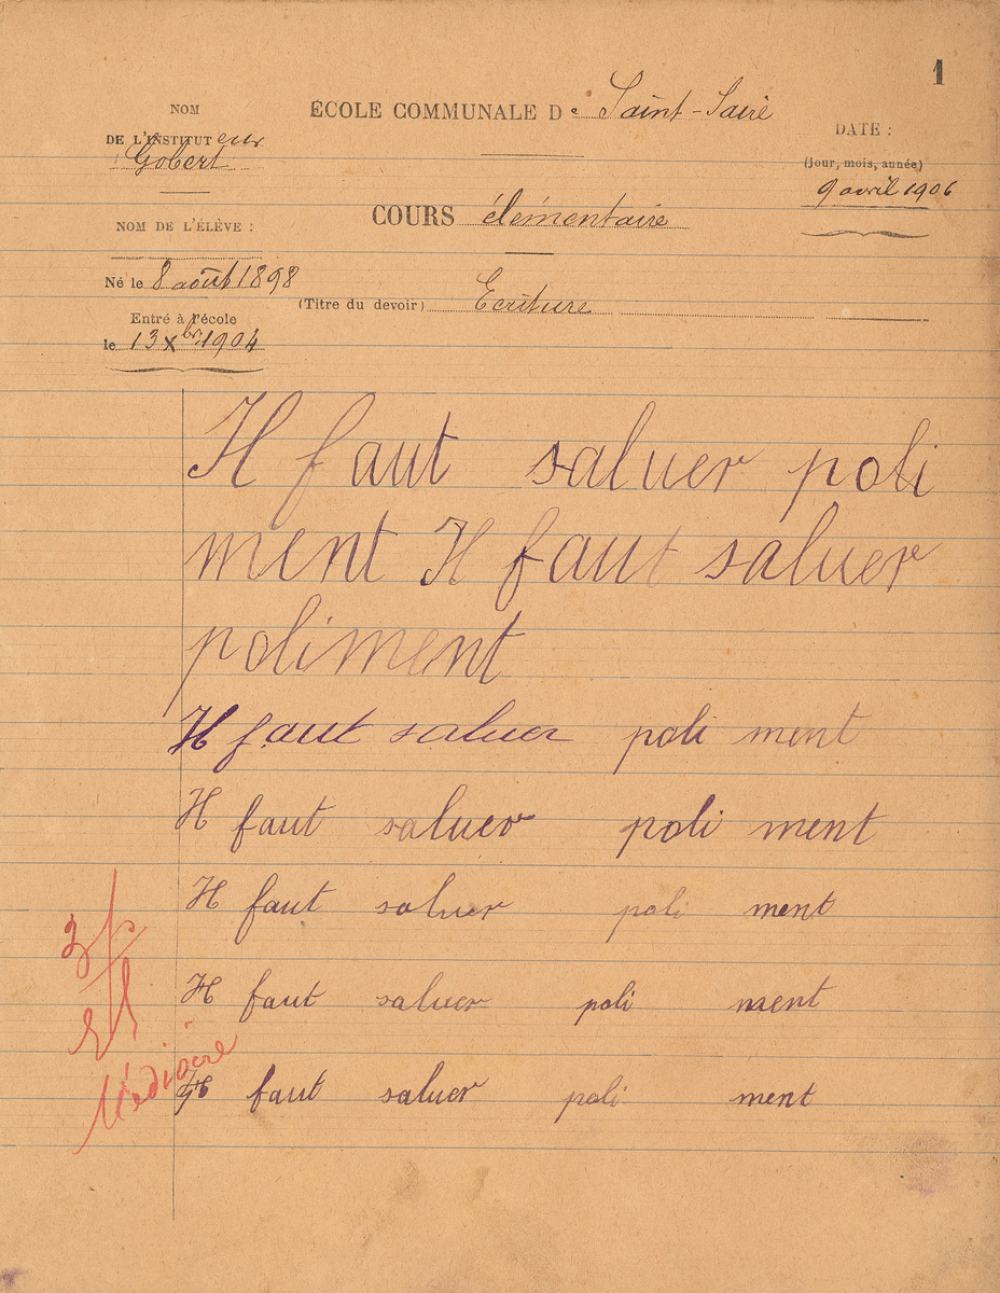 1
NOM
DE L'INSTITUTeur
Gobert
ÉCOLE COMMUNALE De Saint-Saire
DATE :
(Jour, mois, année)
9 avril 1906
COURS élémentaire
NOM DE L'ÉLÈVE :
Né le 8 août 1898
(Titre du devoir) Ecriture
Entré à l'école
le 13 Xbre 1904
Il faut saluer poli
ment Il faut saluer
poliment
Il faut saluer poli ment
Il faut saluer poli ment
Il faut saluer poli ment
Il faut saluer poli ment
Il faut saluer poli ment
Médiocre